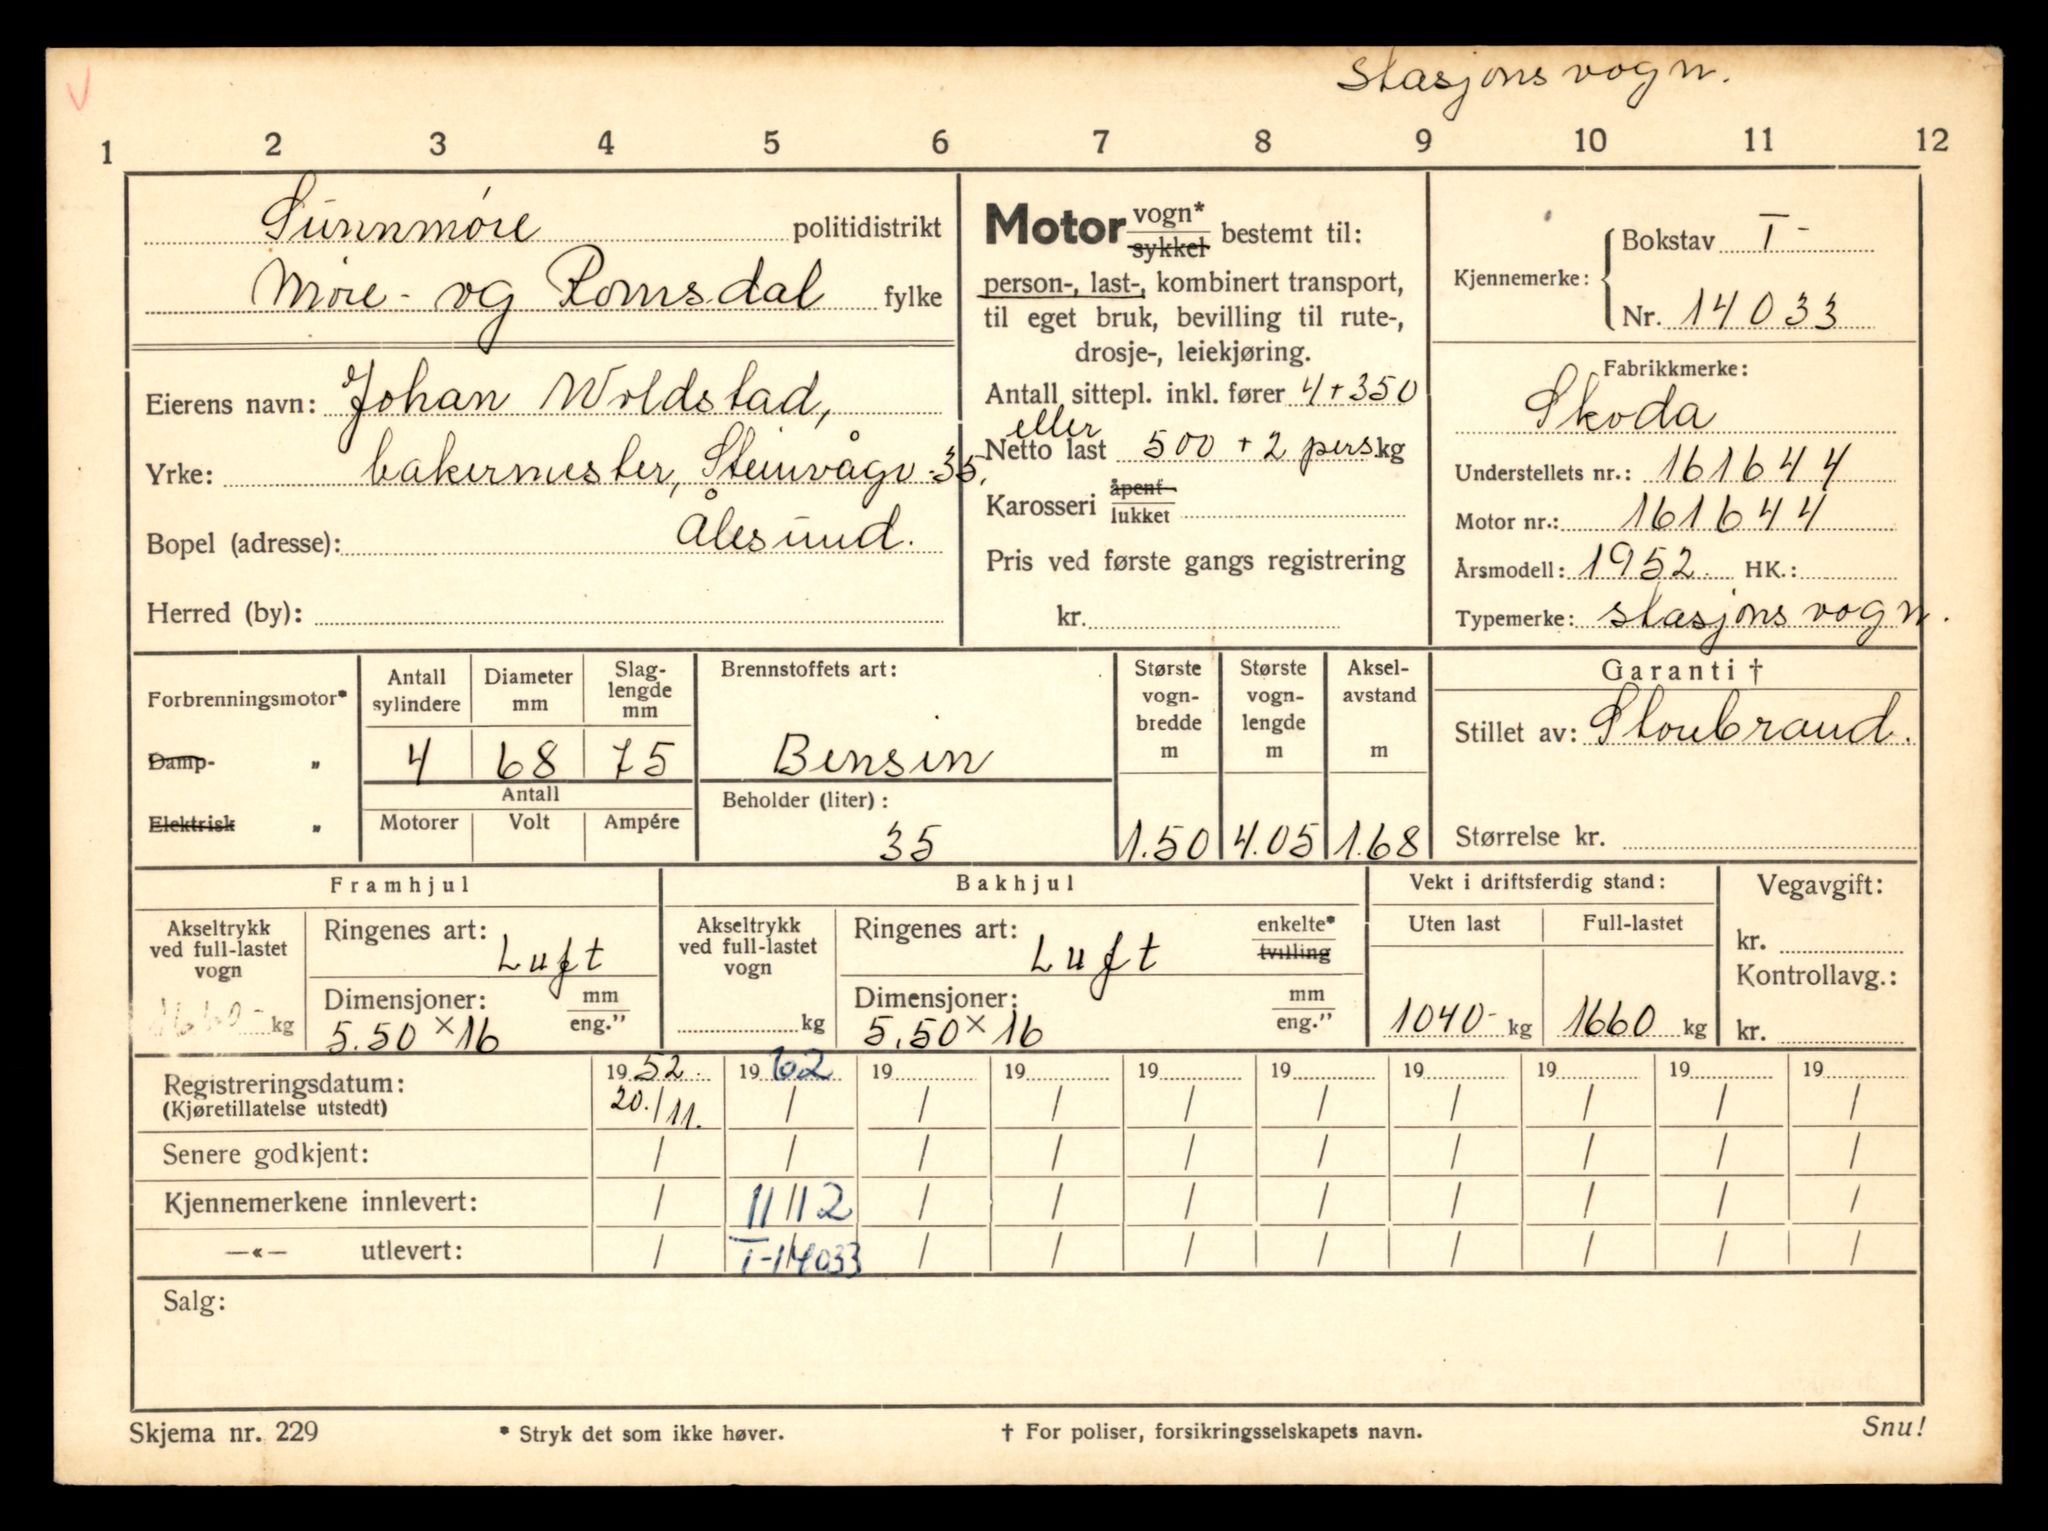 stasjonsvogn.
1 2 3 4 5 6 7 8 9 10 11 12
Sunnmøre politidistrikt
Møre- og Romsdal fylke
Eierens navn: Johan Woldstad,
Yrke: bakermester, Steinvågv. 35,
Bopel (adresse): Ålesund.
Herred (by):
Motor vogn*
sykkel bestemt til:
person-, last-, kombinert transport,
til eget bruk, bevilling til rute-,
drosje-, leiekjøring.
Antall sittepl. inkl. fører 4+350
eller
Netto last 500 + 2 pers. kg
Karosseri åpent
lukket
Pris ved første gangs registrering
kr.
Kjennemerke: Bokstav T-
Nr. 14033
Fabrikkmerke:
Skoda
Understellets nr.: 161644
Motor nr.: 161644
Årsmodell: 1952. HK.:
Typemerke: stasjonsvogn.
Forbrenningsmotor*
Damp- "
Elektrisk "
Antall sylindere
4
Diameter mm
68
Slag-
lengde
mm
75
Antall
Motorer Volt Ampére
Brennstoffets art:
Bensin
Beholder (liter):
35
Største
vogn-
bredde
m
1.50
Største
vogn-
lengde
m
4.05
Aksel-
avstand
m
1.68
Garanti †
Stillet av: Storebrand.
Størrelse kr.
Framhjul
Akseltrykk
ved full-lastet
vogn
1660- kg
Ringenes art:
Luft
Dimensjoner: mm
eng."
5.50 × 16
Bakhjul
Akseltrykk
ved full-lastet
vogn
kg
Ringenes art: enkelte*
tvilling
Luft
Dimensjoner: mm
eng."
5.50 × 16
Vekt i driftsferdig stand:
Uten last Full-lastet
1040- kg 1660 kg
Vegavgift:
kr.
Kontrollavg.:
kr.
1952. 1962 19 19 19 19 19 19 19 19
Registreringsdatum:
(Kjøretillatelse utstedt) 20./11. / / / / / / / / /
Senere godkjent: / / / / / / / / / /
Kjennemerkene innlevert: / 11/12 / / / / / / / /
—«— utlevert: / T-14033 / / / / / / / /
Salg:
Skjema nr. 229
* Stryk det som ikke høver.
† For poliser, forsikringsselskapets navn.
Snu!